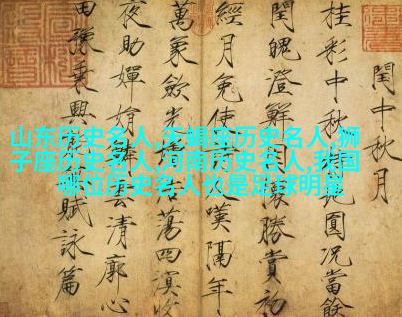 閏中秋月
桂彩中秋地圓况當餘
閏魄澄鮮勝賞初
經月免使嘆隔年
萬象歛光浩蕩四溟收
夜助嬋娟雲清廓心
田豫乘興賦詠篇
山东历史名人,天蝎座历史名人,狮
子座历史名人,河南历史名人,我国
哪位历史名人也是足球明星